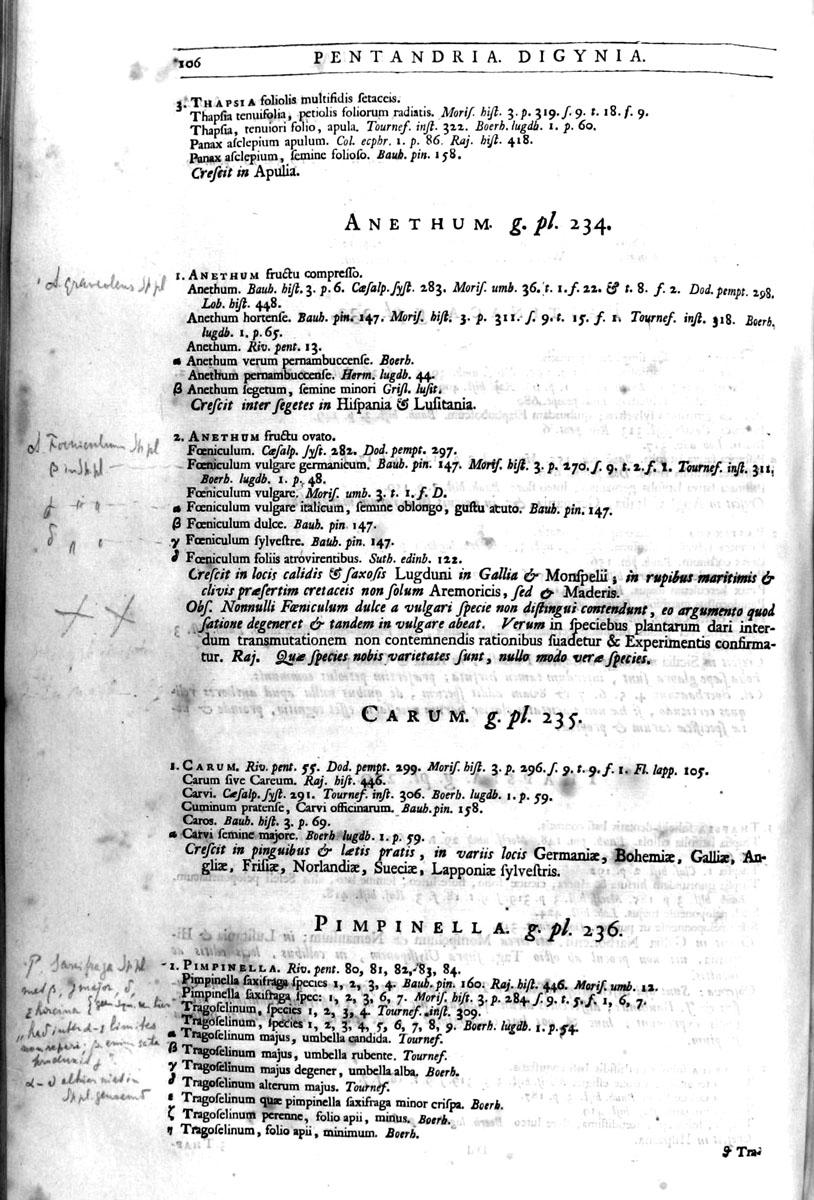 106 PENTANDRIA. DIGYNIA.
3. THAPSIA foliolis multifidis ſetaceis.
Thapſia tenuifolia, petiolis foliorum radiatis. Moriſ. hiſt. 3. p. 319. ſ. 9. t. 18. f. 9.
Thapſia, tenuiori folio, apula. Tournef. inſt. 322. Boerh. lugdb. 1. p. 60.
Panax aſclepium apulum. Col. ecphr. 1. p. 86. Raj. hiſt. 418.
Panax aſclepium, ſemine folioſo. Bauh. pin. 158.
Creſcit in Apulia.
ANETHUM. g. pl. 234.
A. graveolens Sp pl
1. ANETHUM fructu compreſſo.
Anethum. Bauh. hiſt. 3. p. 6. Cæſalp. ſyſt. 283. Moriſ. umb. 36. t. 1. f. 22. & t. 8. f. 2. Dod. pempt. 298.
Lob. hiſt. 448.
Anethum hortenſe. Bauh. pin. 147. Moriſ. hiſt. 3. p. 311. ſ. 9. t. 15. f. 1. Tournef. inſt. 318. Boerh.
lugdb. 1. p. 65.
Anethum. Riv. pent. 13.
α Anethum verum pernambuccenſe. Boerh.
Anethum pernambuccenſe. Herm. lugdb. 44.
β Anethum ſegetum, ſemine minori Griſl. luſit.
Creſcit inter ſegetes in Hiſpania & Luſitania.
A Fœniculum Sp pl
2. ANETHUM fructu ovato.
Fœniculum. Cæſalp. ſyſt. 282. Dod. pempt. 297.
β in Sp. pl
Fœniculum vulgare germanicum. Bauh. pin. 147. Moriſ. hiſt. 3. p. 270. ſ. 9. t. 2. f. 1. Tournef. inſt. 311.
Boerh. lugdb. 1. p. 48.
Fœniculum vulgare. Moriſ. umb. 3. t. 1. f. D.
α Fœniculum vulgare italicum, ſemine oblongo, guſtu acuto. Bauh. pin. 147.
β Fœniculum dulce. Bauh. pin. 147.
γ Fœniculum ſylveſtre. Bauh. pin. 147.
δ Fœniculum foliis atrovirentibus. Suth. edinb. 122.
Creſcit in locis calidis & ſaxoſis Lugduni in Gallia & Monſpelii; in rupibus maritimis &
clivis præſertim cretaceis non ſolum Aremoricis, ſed & Maderis.
Obſ. Nonnulli Fœniculum dulce a vulgari ſpecie non diſtingui contendunt, eo argumento quod
ſatione degeneret & tandem in vulgare abeat. Verum in ſpeciebus plantarum dari inter-
dum transmutationem non contemnendis rationibus ſuadetur & Experimentis confirma-
tur. Raj. Quæ ſpecies nobis varietates ſunt, nullo modo veræ ſpecies.
CARUM. g. pl. 235.
1. CARUM. Riv. pent. 55. Dod. pempt. 299. Moriſ. hiſt. 3. p. 296. ſ. 9. t. 9. f. 1. Fl. lapp. 105.
Carum ſive Careum. Raj. hiſt. 446.
Carvi. Cæſalp. ſyſt. 291. Tournef. inſt. 306. Boerh. lugdb. 1. p. 59.
Cuminum pratenſe, Carvi officinarum. Bauh. pin. 158.
Caros. Bauh. hiſt. 3. p. 69.
α Carvi ſemine majore. Boerh. lugdb. 1. p. 59.
Creſcit in pinguibus & lætis pratis, in variis locis Germaniæ, Bohemiæ, Galliæ, An-
gliæ, Friſiæ, Norlandiæ, Sueciæ, Lapponiæ ſylveſtris.
PIMPINELLA. g. pl. 236.
P. Saxifraga Sp pl
1. PIMPINELLA. Riv. pent. 80, 81, 82, 83, 84.
Pimpinella ſaxifraga ſpecies 1, 2, 3, 4. Bauh. pin. 160. Raj. hiſt. 446. Moriſ. umb. 12.
Pimpinella ſaxifraga ſpec: 1, 2, 3, 6, 7. Moriſ. hiſt. 3. p. 284. ſ. 9. t. 5. f. 1, 6, 7.
Tragoſelinum, ſpecies 1, 2, 3, 4. Tournef. inſt. 309.
Tragoſelinum, ſpecies 1, 2, 3, 4, 5, 6, 7, 8, 9. Boerh. lugdb. 1. p. 54.
α Tragoſelinum majus, umbella candida. Tournef.
β Tragoſelinum majus, umbella rubente. Tournef.
γ Tragoſelinum majus degener, umbella alba. Boerh.
δ Tragoſelinum alterum majus. Tournef.
ε Tragoſelinum quæ pimpinella ſaxifraga minor criſpa. Boerh.
ζ Tragoſelinum perenne, folio apii, minus. Boerh.
η Tragoſelinum, folio apii, minimum. Boerh.
ϑ Tra-